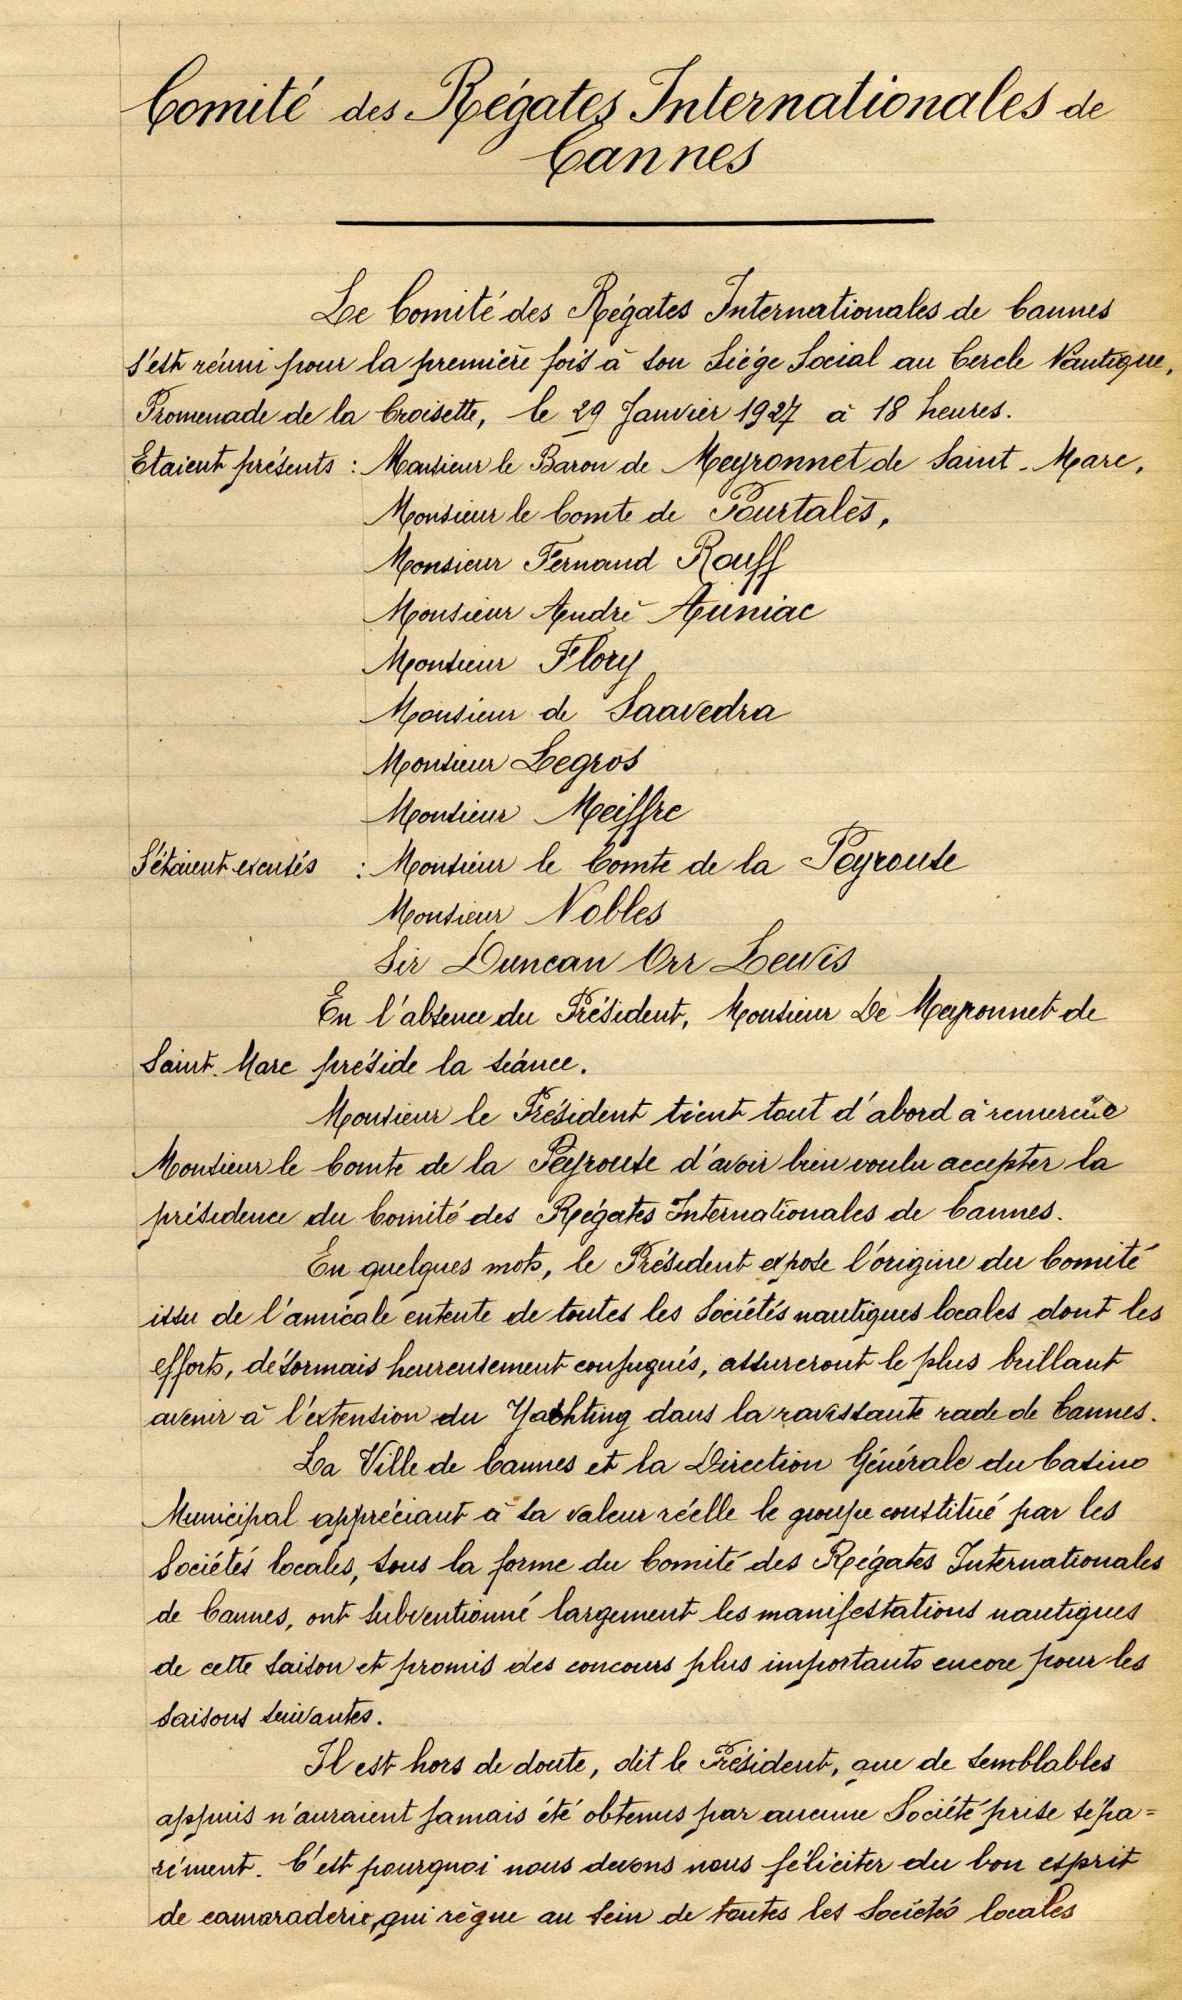 Comité des Régates Internationales de
Cannes
Le Comité des Régates Internationales de Cannes
s'est réuni pour la première fois à son Siège Social au Cercle Nautique,
Promenade de la Croisette, le 29 Janvier 1927 à 18 heures.
Etaient présents : Monsieur le Baron de Meyronnet de Saint-Marc,
Monsieur le Comte de Pourtalès,
Monsieur Fernand Rouff
Monsieur André Auniac
Monsieur Flory
Monsieur de Saavedra
Monsieur Legros
Monsieur Meiffre
S'étaient excusés : Monsieur le Comte de la Peyrouse
Monsieur Nobles
Sir Duncan Orr Lewis
En l'absence du Président, Monsieur De Meyronnet de
Saint-Marc préside la séance.
Monsieur le Président tient tout d'abord à remercier
Monsieur le Comte de la Peyrouse d'avoir bien voulu accepter la
présidence du Comité des Régates Internationales de Cannes.
En quelques mots, le Président expose l'origine du Comité
issu de l'amicale entente de toutes les Sociétés nautiques locales dont les
efforts, désormais heureusement conjugués, assureront le plus brillant
avenir à l'extension du Yachting dans la ravissante rade de Cannes.
La Ville de Cannes et la Direction Générale du Casino
Municipal appréciant à sa valeur réelle le groupe constitué par les
Sociétés locales, sous la forme du Comité des Régates Internationales
de Cannes, ont subventionné largement les manifestations nautiques
de cette saison et promis des concours plus importants encore pour les
saisons suivantes.
Il est hors de doute, dit le Président, que de semblables
appuis n'auraient jamais été obtenus par aucune Société prise sépa=
rément. C'est pourquoi nous devons nous féliciter du bon esprit
de camaraderie, qui règne au sein de toutes les Sociétés locales